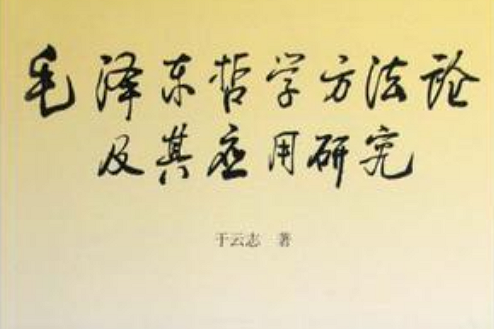 毛泽东哲学方法论
及其应用研究
于云志 著